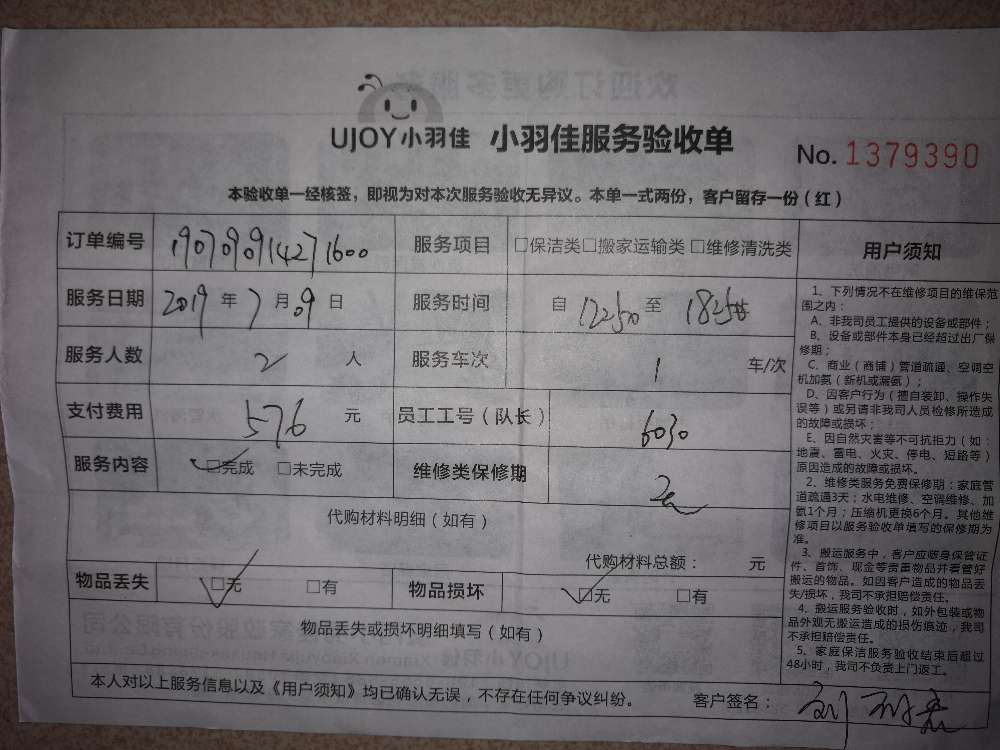 UJOY小羽佳 小羽佳服务验收单
No. 1379390
本验收单一经核签，即视为对本次服务验收无异议。本单一式两份，客户留存一份（红）
订单编号 1907090914271600 服务项目 □保洁类□搬家运输类 □维修清洗类
服务日期 2019 年 7 月 09 日 服务时间 自 至
服务人数 2 人 服务车次 1 车/次
支付费用 576 元 员工工号（队长） 6030
服务内容 □完成 □未完成 维修类保修期
代购材料明细（如有）
代购材料总额： 元
物品丢失 □无 □有 物品损坏 □无 □有
物品丢失或损坏明细填写（如有）
本人对以上服务信息以及《用户须知》均已确认无误，不存在任何争议纠纷。 客户签名：
用户须知
1、下列情况不在维修项目的维保范
围之内：
A、非我司员工提供的设备或部件；
B、设备或部件本身已经超过出厂保
修期；
C、商业（商铺）管道疏通、空调空
机加氨（新机或漏氨）；
D、因客户行为（擅自装卸、操作失
误等）或另请非我司人员检修所造成
的故障或损坏；
E、因自然灾害等不可抗拒力（如：
地震、雷电、火灾、停电、短路等）
原因造成的故障或损坏。
2、维修类服务免费保修期：家庭管
道疏通3天；水电维修、空调维修、加
氨1个月；压缩机更换6个月。其他维
修项目以服务验收单填写的保修期为
准。
3、搬运服务中，客户应随身保管证
件、首饰、现金等贵重物品并看管好
搬运的物品。如因客户造成的物品丢
失/损坏，我司不承担赔偿责任。
4、搬运服务验收时，如外包装或物
品外观无搬运造成的损伤痕迹，我司
不承担赔偿责任。
5、家庭保洁服务验收结束后超过
48小时，我司不负责上门返工。